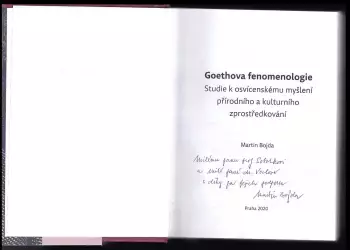 Goethova fenomenologie
Studie k osvícenskému myšlení
přírodního a kulturního
zprostředkování
Martin Bojda
Milému panu prof Sobotkovi
a milé paní dr.
s díky za jejich podporu
Martin Bojda
Praha 2020